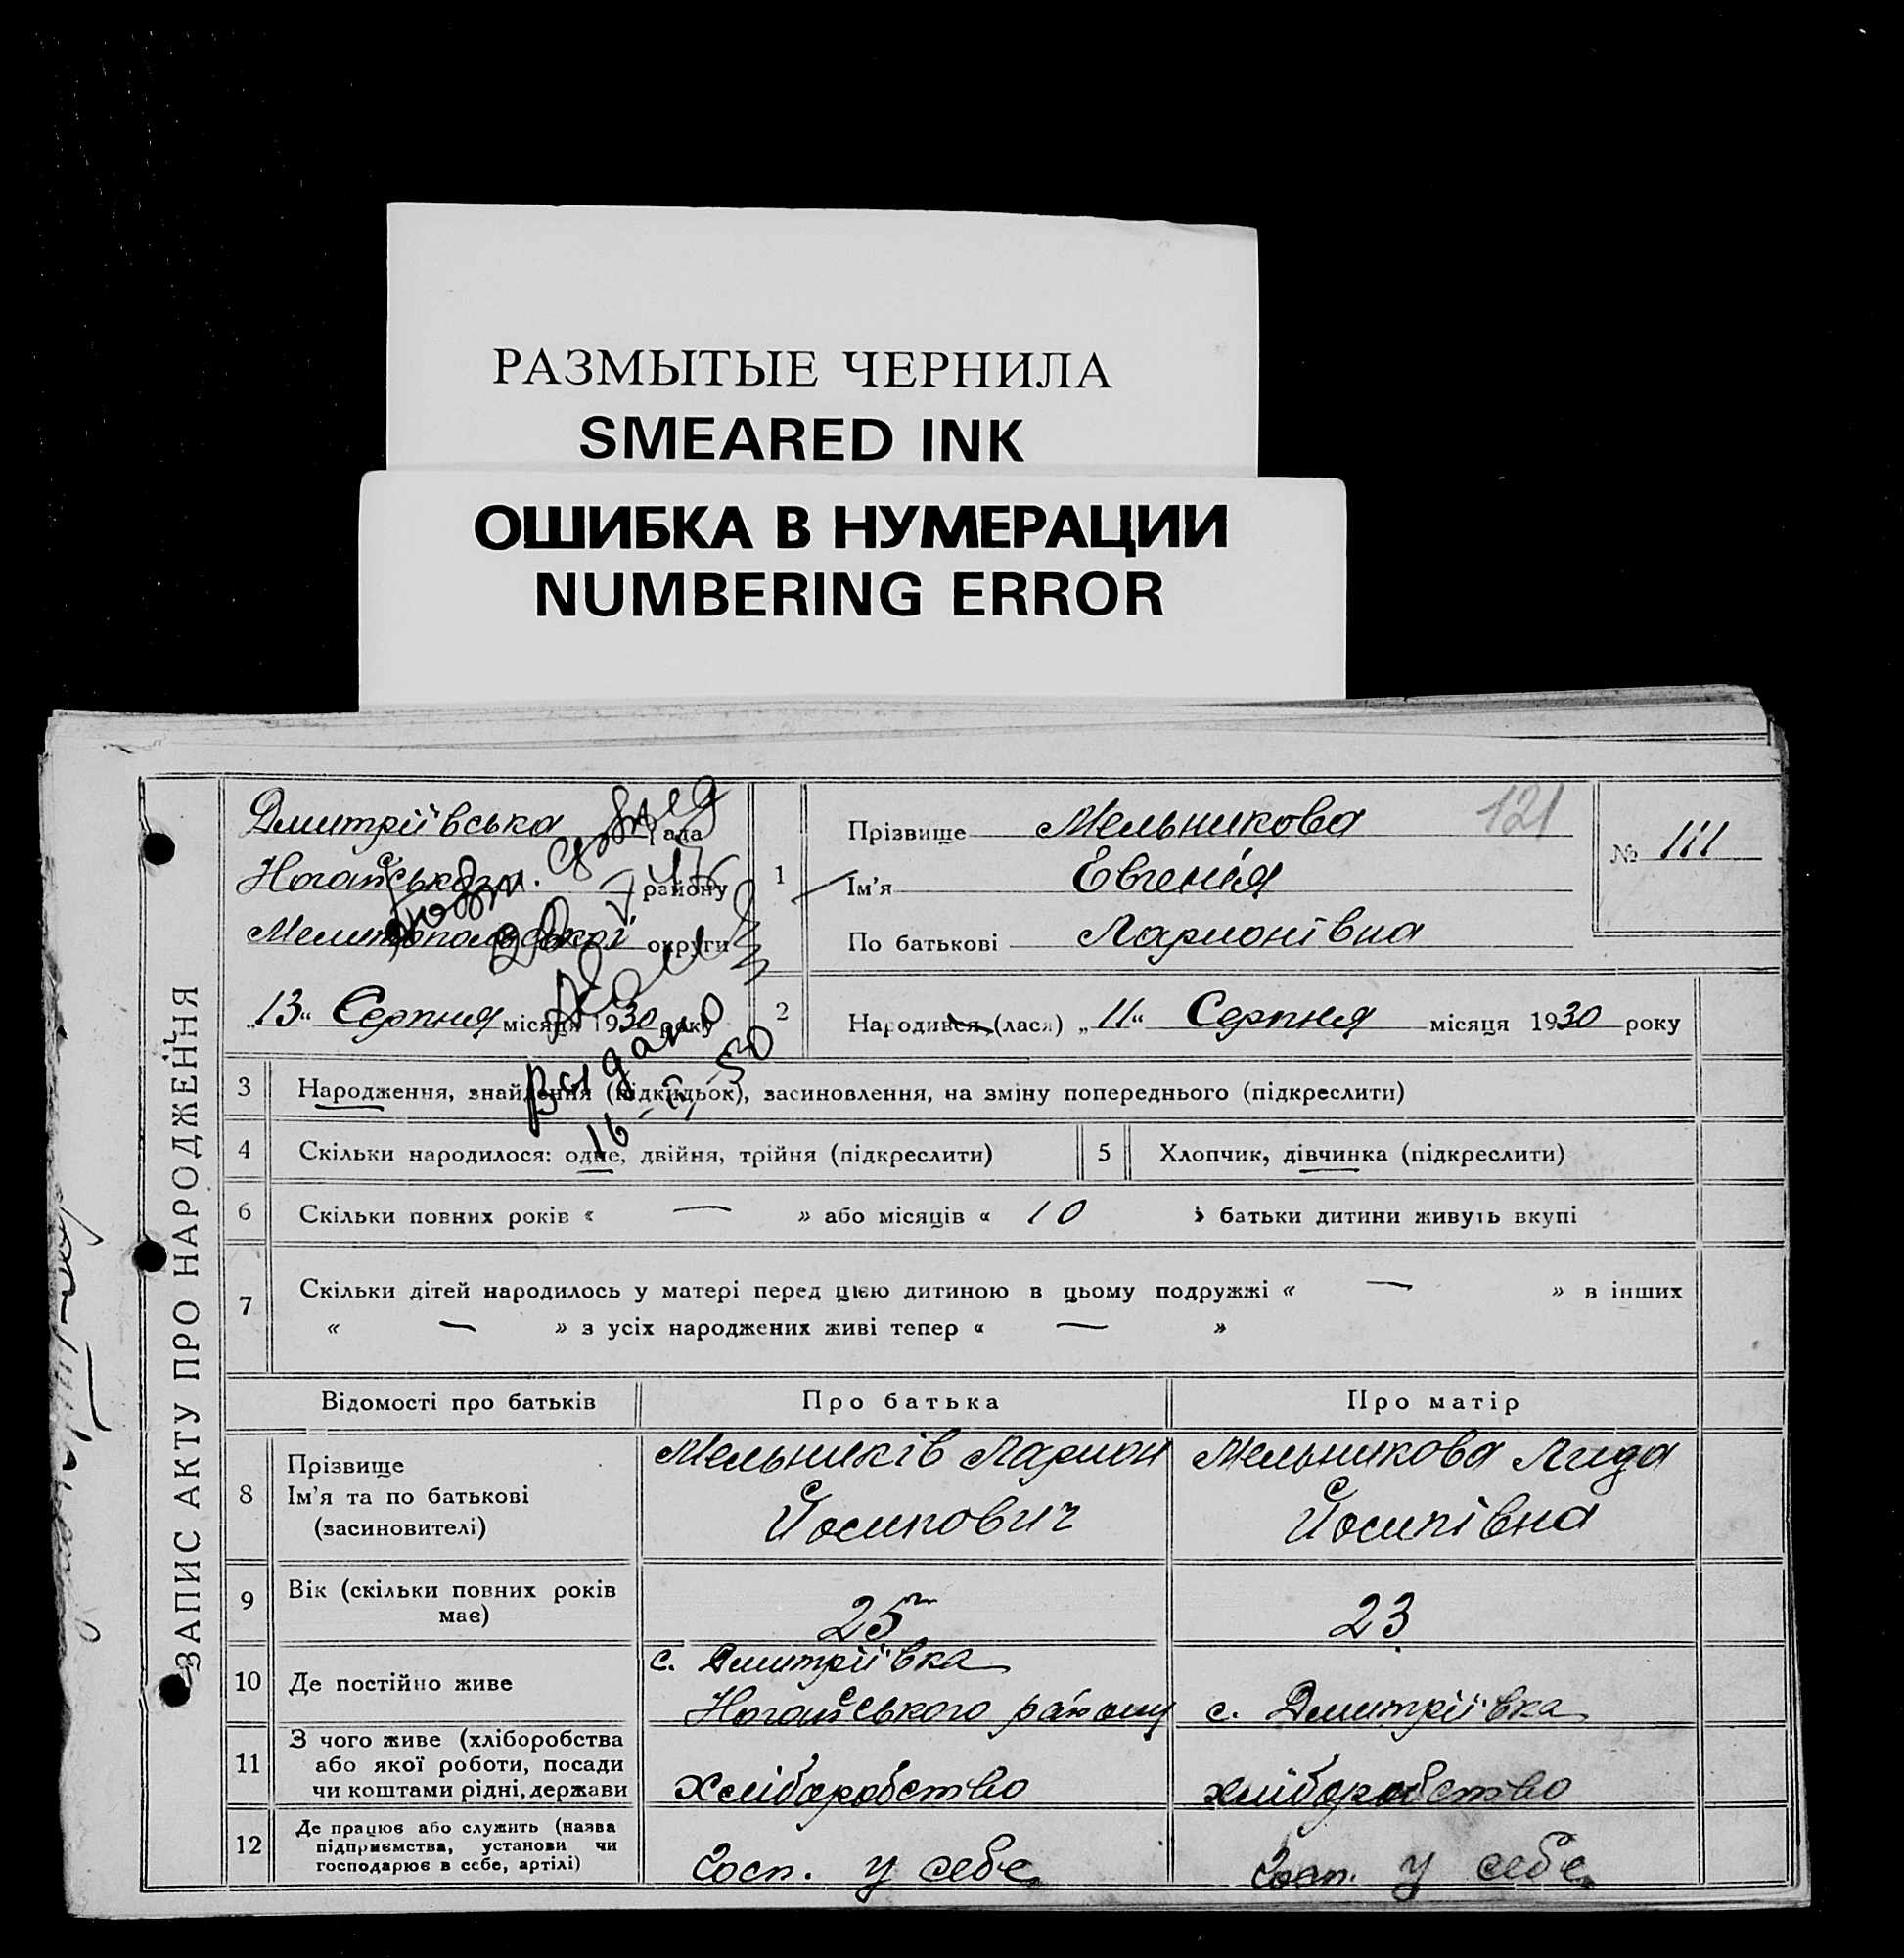 РАЗМЫТЫЕ ЧЕРНИЛА
SMEARED INK
ОШИБКА В НУМЕРАЦИИ
NUMBERING ERROR
ЗАПИС АКТУ ПРО НАРОДЖЕННЯ
Дмитріївська Рада
Ногайського району
Мелитопольської округи
„13“ Серпня місяця 1930 року
Видано
1
Прізвище Мельникова
121
№ 111
Ім'я Євгенія
По батькові Ларионівна
2
Народився (лася) „11“ Серпня місяця 1930 року
3 Народження, знайдення (підкидьок), засиновлення, на зміну попереднього (підкреслити)
4 Скільки народилося: одне, двійня, трійня (підкреслити) 5 Хлопчик, дівчинка (підкреслити)
6 Скільки повних років « — » або місяців « 10 » батьки дитини живуть вкупі
7 Скільки дітей народилось у матері перед цією дитиною в цьому подружжі « — » в інших
« — » з усіх народжених живі тепер « — »
Відомості про батьків Про батька Про матір
8
Прізвище
Ім'я та по батькові
(засиновителі)
Мельників Ларион
Йосипович
Мельникова Лида
Йосипівна
9
Вік (скільки повних років
має)
25
23
10 Де постійно живе
с. Дмитріївка
Ногайського району
с. Дмитріївка
11
З чого живе (хліборобства
або якої роботи, посади
чи коштами рідні, держави
Хліборобство
хліборобство
12
Де працює або служить (назва
підприємства, установи чи
господарює в себе, артілі)
Госп. у себе
Госп. у себе